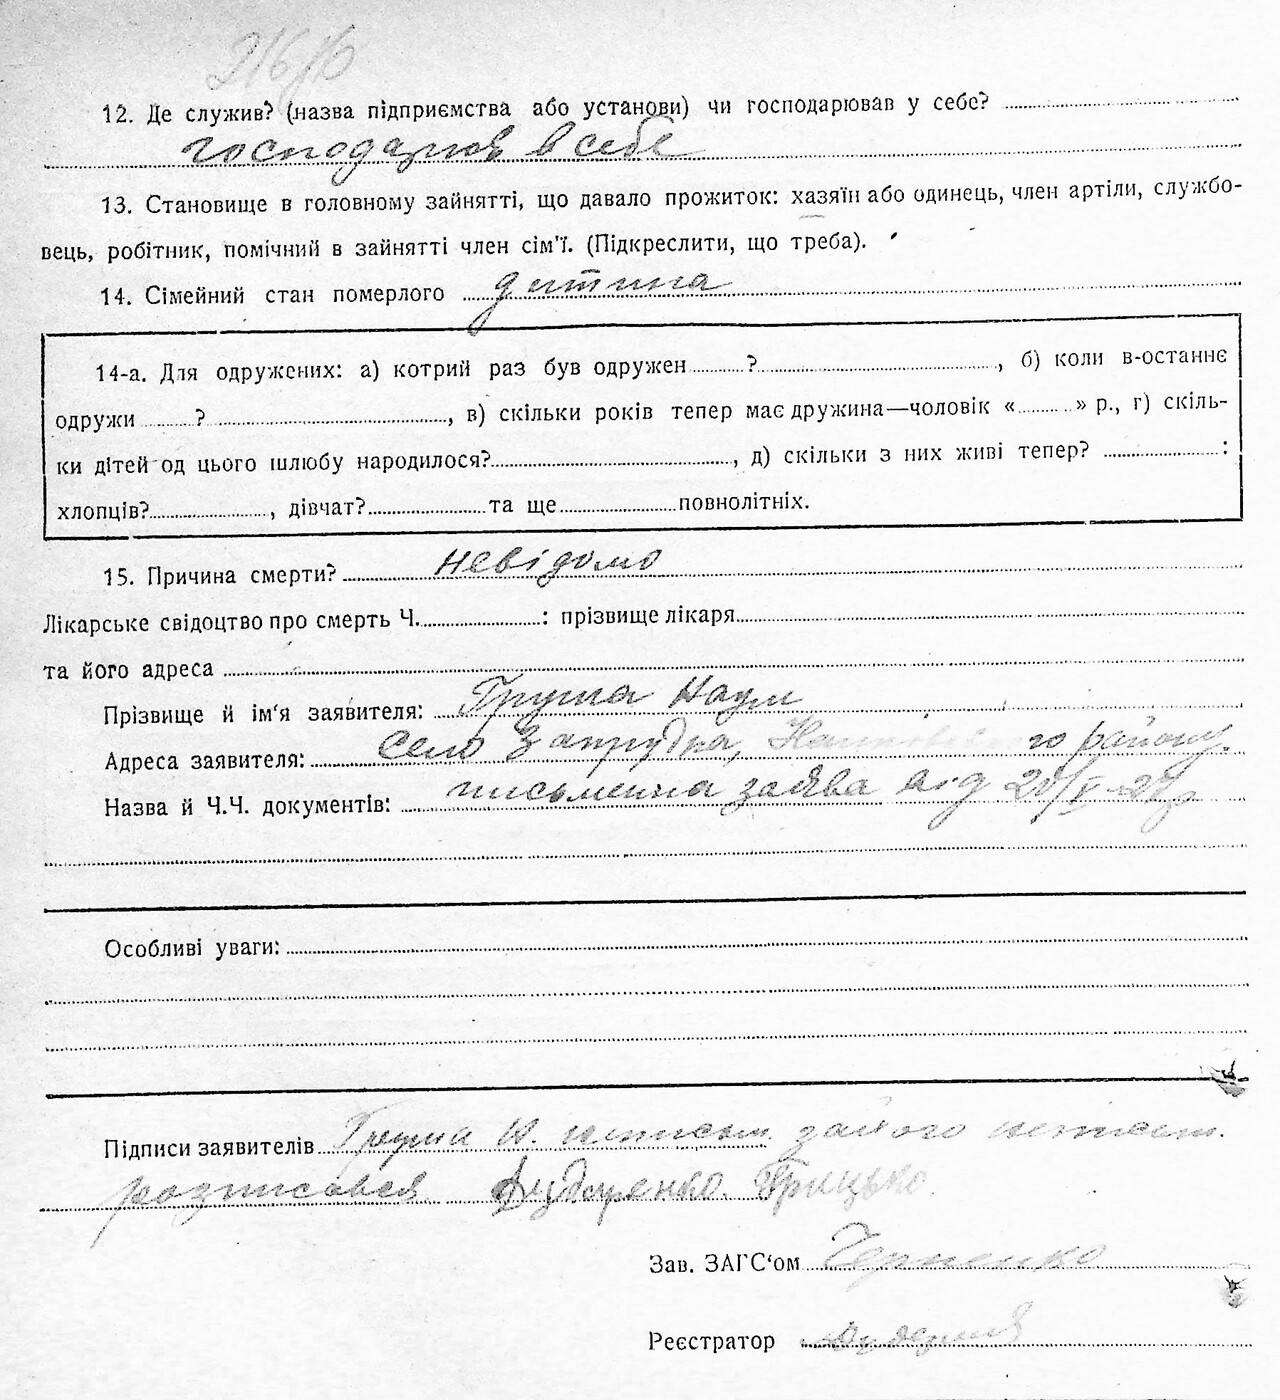 12. Де служив? (назва підприємства або установи) чи господарював у себе?
господарюв в себе
13. Становище в головному зайнятті, що давало прожиток: хазяїн або одинець, член артіли, службо-
вець, робітник, помічний в зайнятті член сім'ї. (Підкреслити, що треба).
14. Сімейний стан померлого дитина
14-а. Для одружених: а) котрий раз був одружен ? , б) коли в-останнє
одружи ? , в) скільки років тепер має дружина—чоловік « » р., г) скіль-
ки дітей од цього шлюбу народилося? , д) скільки з них живі тепер? :
хлопців? , дівчат? та ще повнолітніх.
15. Причина смерти? невідомо
Лікарське свідоцтво про смерть Ч. : прізвище лікаря
та його адреса
Прізвище й ім'я заявителя: Груша Наум
Адреса заявителя: село Запрудка, го району.
Назва й Ч.Ч. документів: письменна заява від
Особливі уваги:
Підписи заявителів Груша Н.
розписався Грицько
Зав. ЗАГС'ом Черненко
Реєстратор